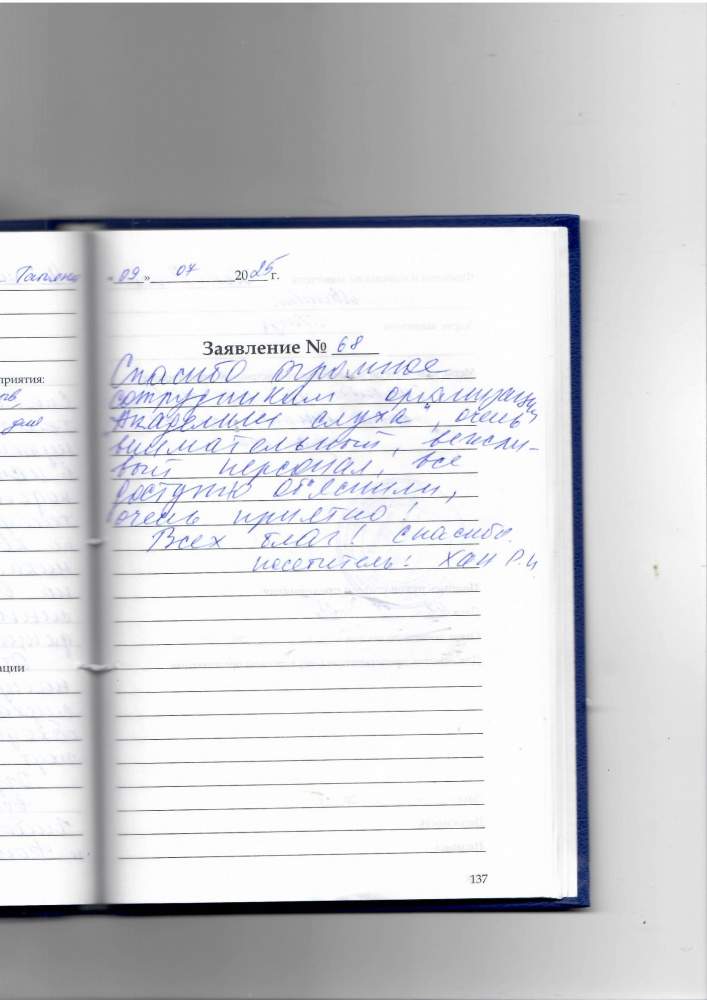 Татьяна
приятия:
для
ации
«09» 07 2025 г.
Заявление № 68
Спасибо огромное
сотрудникам организации
"Академии слуха", очень
внимательный, вежли-
вый персонал, все
доступно объяснили,
очень приятно!
Всех благ! спасибо.
посетитель: Хан Р.И
137